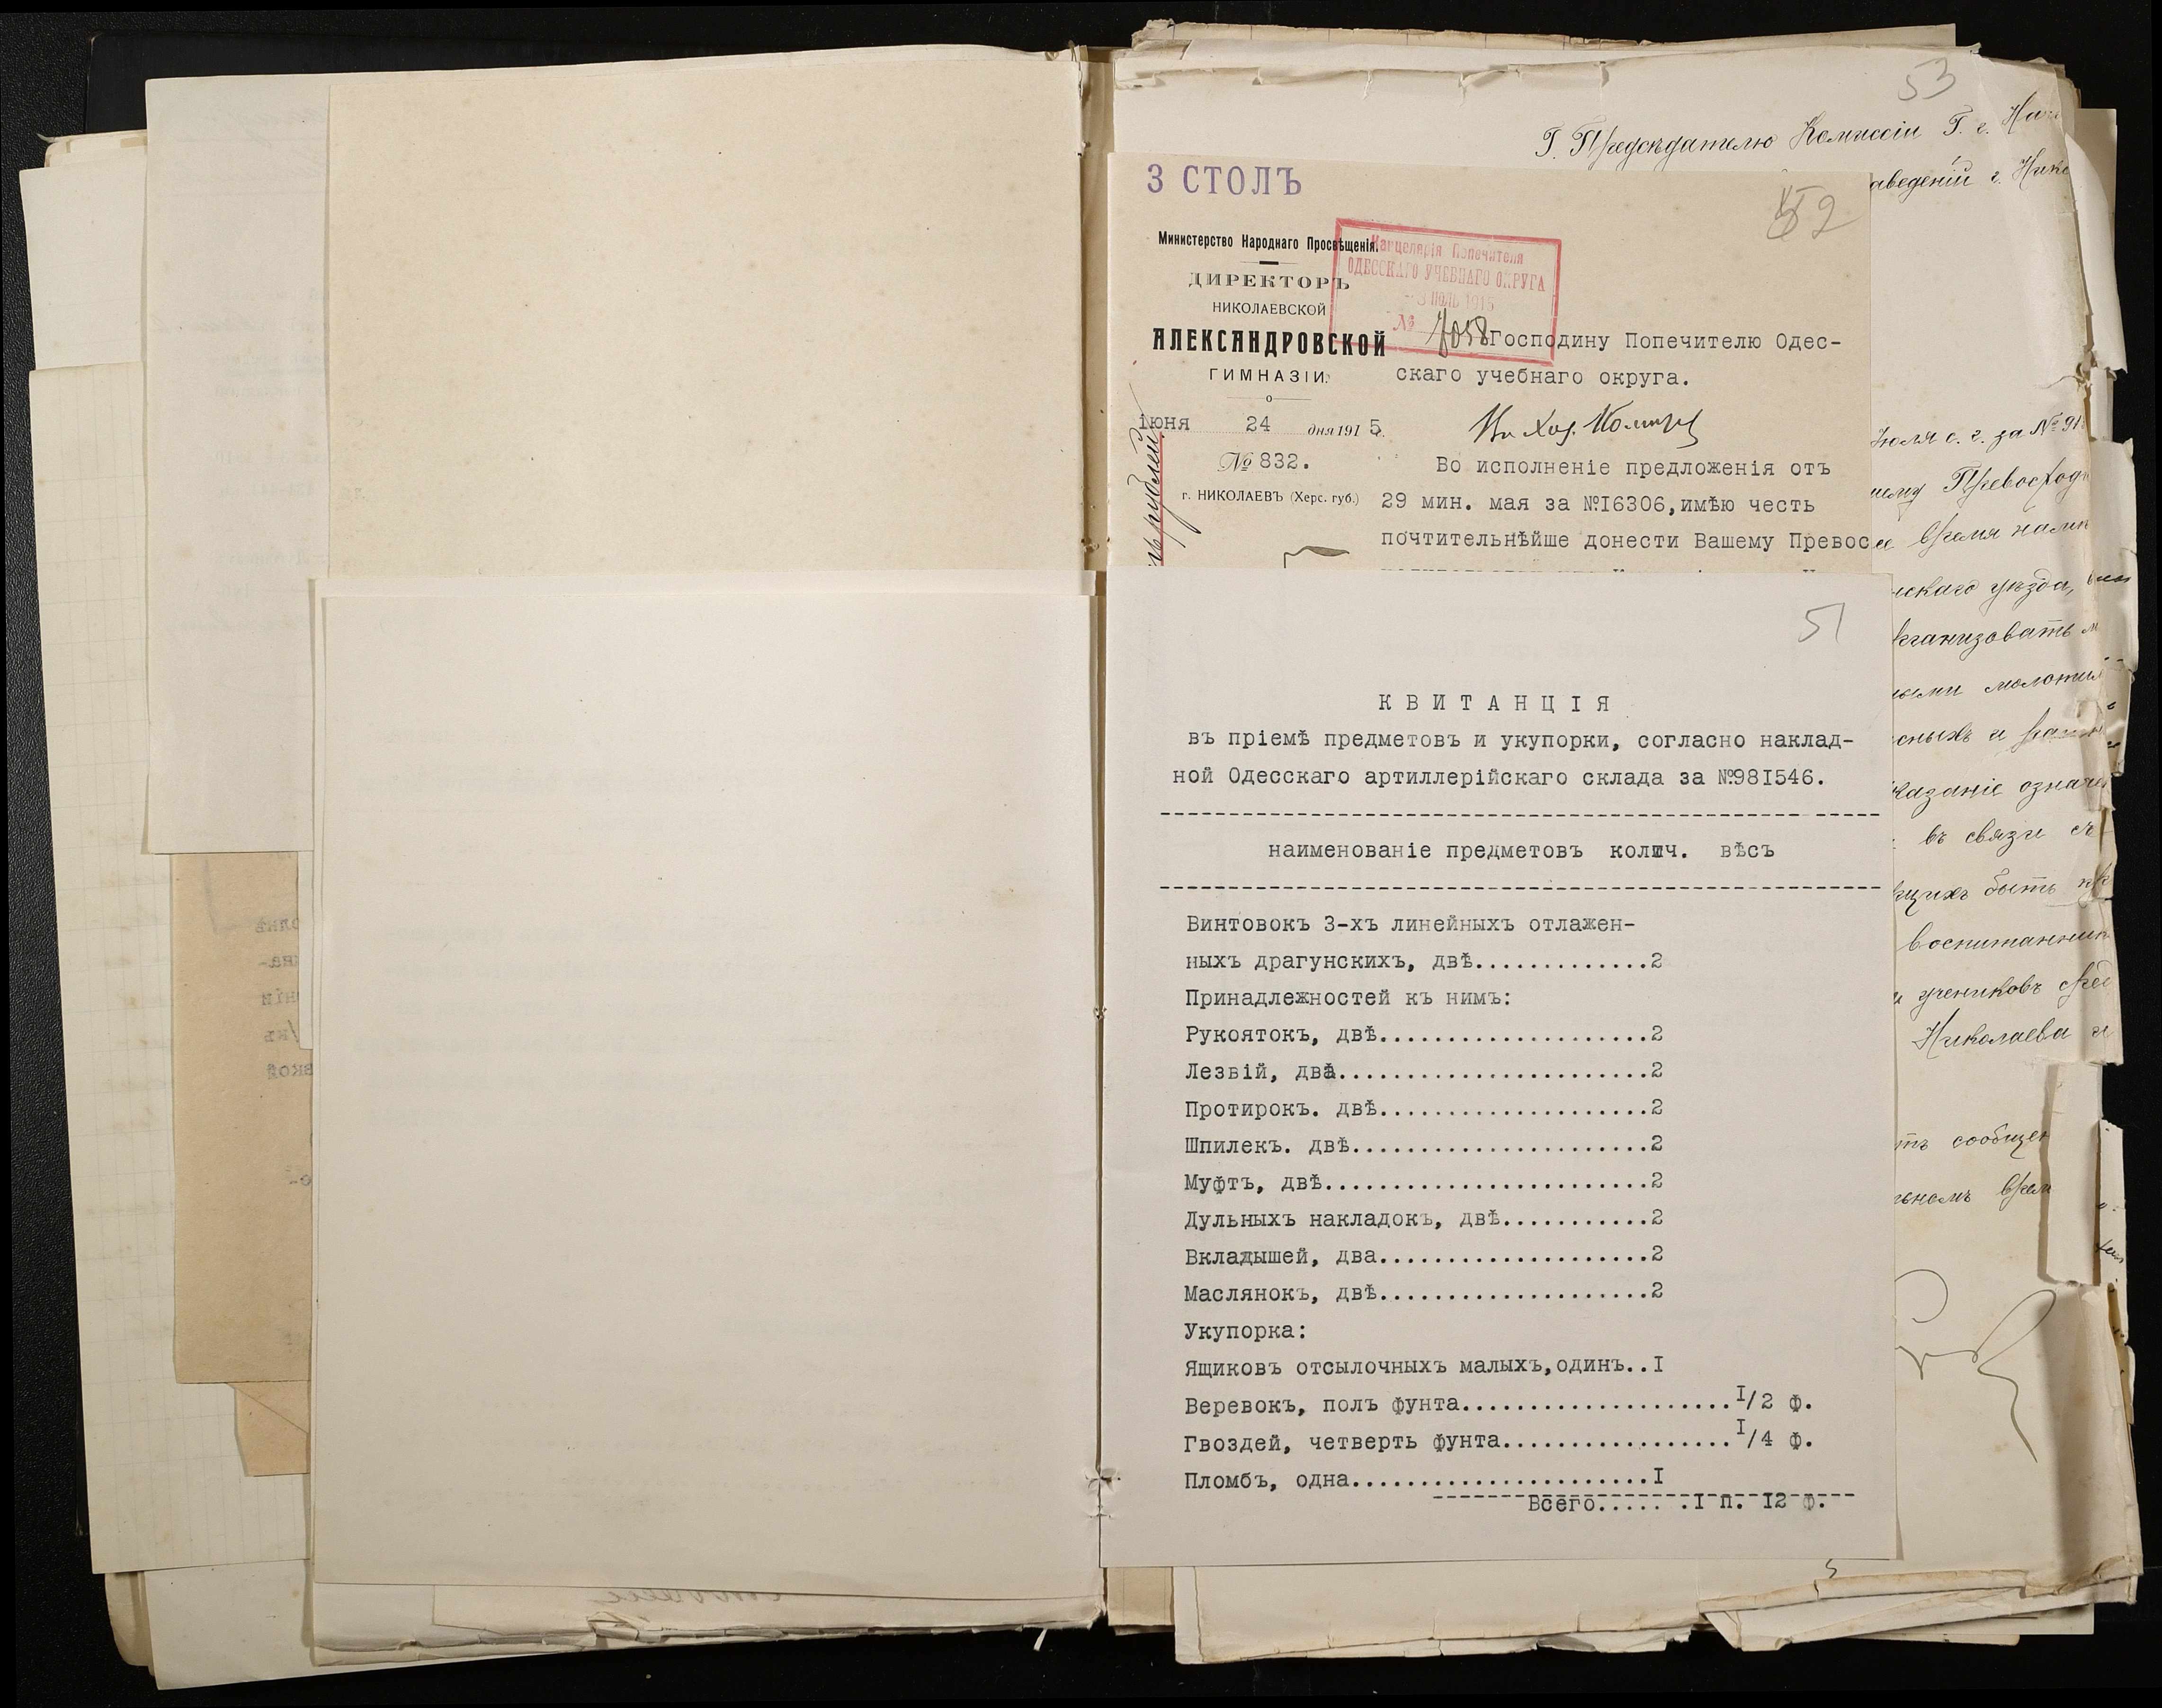 53
Г. Предсѣдателю Комиссіи Г. г.
аведеній г.
3 СТОЛЪ
52
Министерство Народнаго Просвѣщенія.
ДИРЕКТОРЪ
НИКОЛАЕВСКОЙ
АЛЕКСАНДРОВСКОЙ
ГИМНАЗІИ.
іюня 24 дня 1915 г.
№ 832.
г. НИКОЛАЕВЪ (Херс. губ.)
рублей
Канцелярія Попечителя
ОДЕССКАГО УЧЕБНАГО ОКРУГА
3 ІЮЛЬ 1915
№ 7058
Господину Попечителю Одес-
скаго учебнаго округа.
Во исполненіе предложенія отъ
29 мин. мая за №I6306,имѣю честь
почтительнѣйше донести Вашему Превос
Іюля с. г. за № 91
ему Превосход
время
скаго уѣзда,
рганизовать
ными молотил
сныхъ и
казаніе означе
въ связи съ
щихъ быть
воспитанник
и учениковъ сред
Николаева и
тъ сообщен
льномъ врем
51
К В И Т А Н Ц I Я
въ пріемѣ предметовъ и укупорки, согласно наклад-
ной Одесскаго артиллерійскаго склада за №98I546.
наименованіе предметовъ колич. вѣсъ
Винтовокъ 3-хъ линейныхъ отлажен-
ныхъ драгунскихъ, двѣ..............2
Принадлежностей къ нимъ:
Рукоятокъ, двѣ.....................2
Лезвій, два........................2
Протирокъ. двѣ.....................2
Шпилекъ. двѣ.......................2
Муфтъ, двѣ.........................2
Дульныхъ накладокъ, двѣ............2
Вкладышей, два.....................2
Маслянокъ, двѣ.....................2
Укупорка:
Ящиковъ отсылочныхъ малыхъ,одинъ..I
Веревокъ, полъ фунта.....................I/2 ф.
Гвоздей, четверть фунта..................I/4 ф.
Пломбъ, одна.......................I
Всего.......I п. I2 ф.